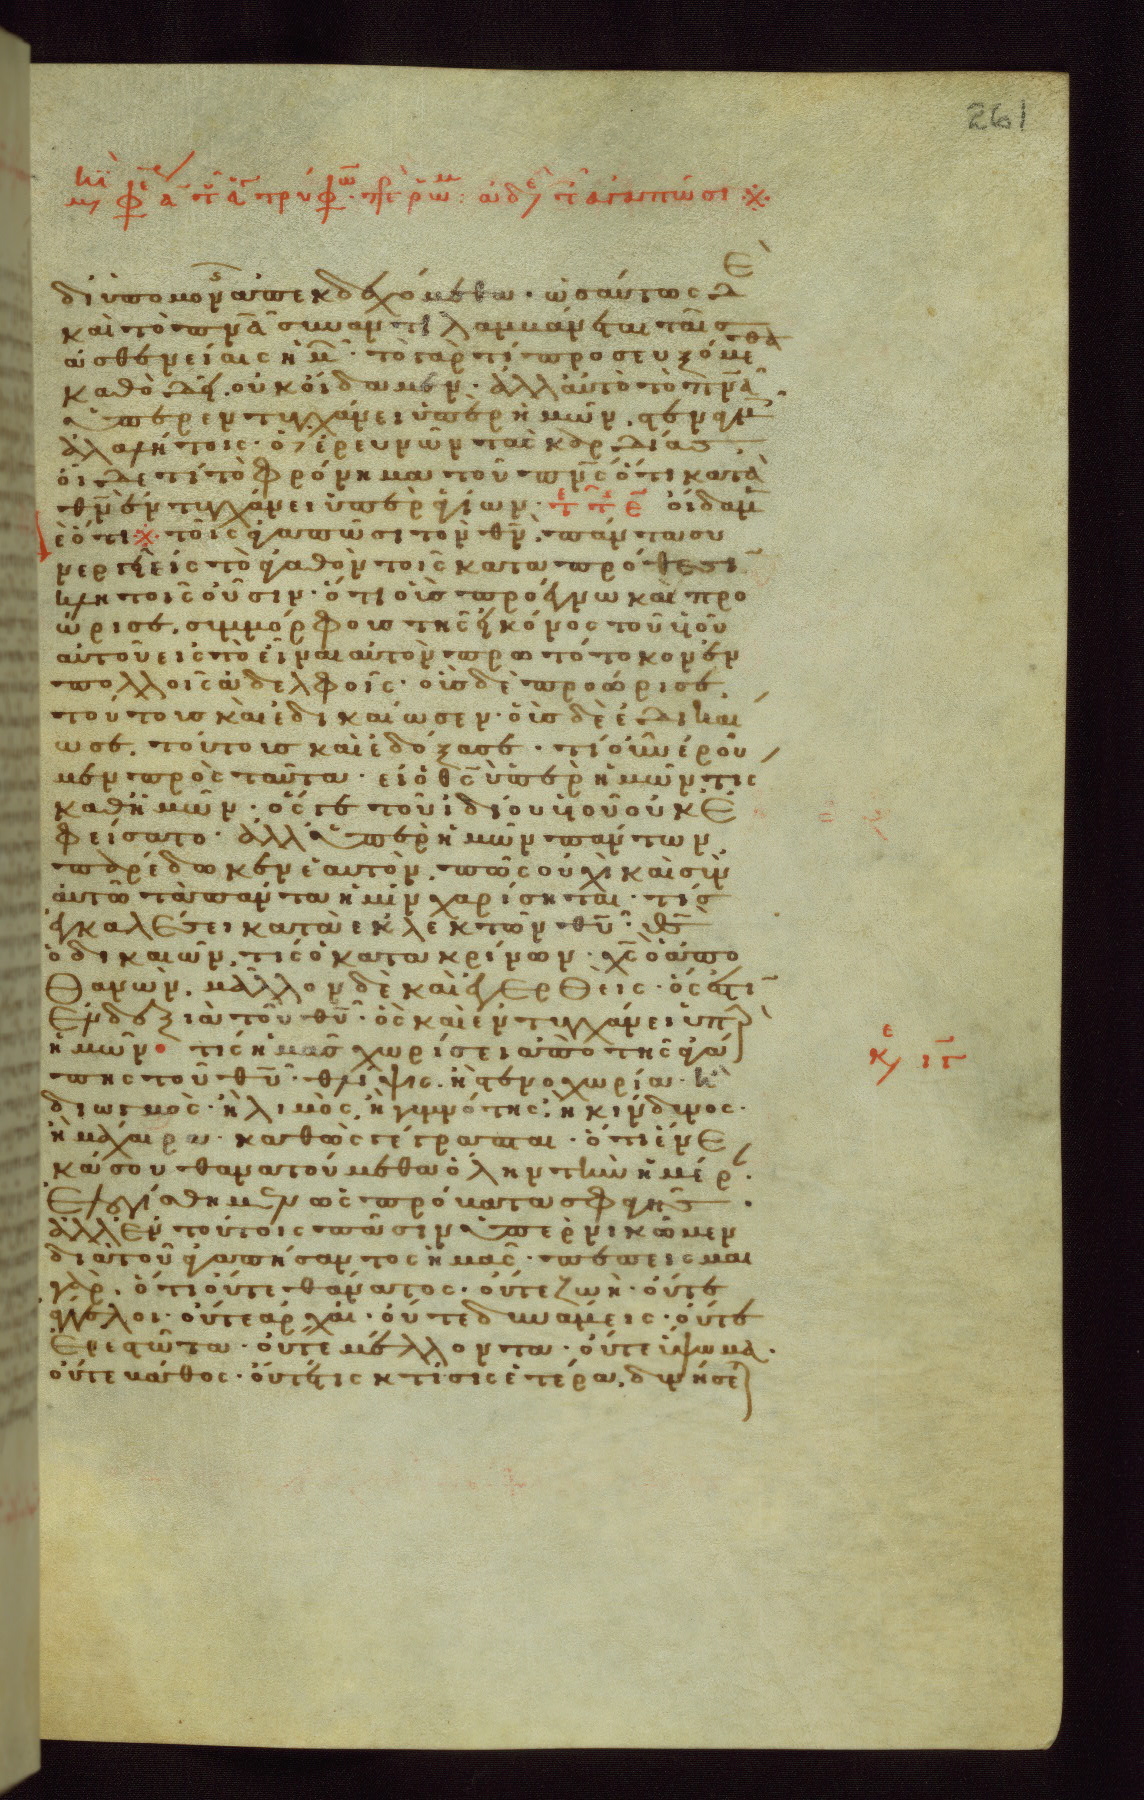 261
δι ὑπομονῆς ἀπεκδεχόμεθα· ὡσαύτως δὲ
καὶ τὸ πνᾶ συναντιλαμβάνεται ταῖς
ἀσθενείαις ἡμ· τὸ γὰρ τί προσευξόμεθα
καθὸ δεῖ. οὐκ οἴδαμεν· ἀλλ αὐτὸ τὸ πνᾶ
ὑπερεντυγχάνει ὑπὲρ ἡμῶν. στεναγμ
ἀλαλήτοις· ὁ δὲ ἐρευνῶν τὰς καρδίας.
οἶδε τί τὸ φρόνημα τοῦ πνς ὅτι κατὰ
θν ἐντυγχάνει ὑπὲρ ἁγίων· οἴδαμ
ὅτι τοῖς ἀγαπῶσι τὸν θν. πάντα συ
νεργεῖ εἰς τὸ ἀγαθὸν τοῖς κατα πρόθεσι
κλητοῖς οὖσιν· ὅτι οἷς προέγνω καὶ προ
ώρισε. συμμόρφους τῆς εἰκόνος τοῦ υἱοῦ
αὐτοῦ εἰς τὸ εἶναι αὐτὸν πρωτότοκον ἐν
πολλοῖς ἀδελφοῖς· οἷς δὲ προώρισε.
τούτοις καὶ ἐδικαίωσεν· οἷς δὲ ἐδικαί
ωσε. τούτοις καὶ ἐδόξασε· τί οὖν ἐροῦ
μεν πρὸς ταῦτα· εἰ ὁ θς ὑπὲρ ἡμῶν τίς
καθ ἡμῶν· ὅς γε τοῦ ἰδίου υἱοῦ οὐκ ἐ
φείσατο· ἀλλ ὑπὲρ ἡμῶν πάντων
παρέδωκεν ἑαυτὸν. πῶς οὐχὶ καὶ σὺν
αὐτῶ τὰ πάντα ἡμῖν χαρίσηται· τίς
ἐγκαλέσει κατὰ ἐκλεκτῶν θυ· θς
ὁ δικαιῶν. τίς ὁ κατακρίνων· χς ὁ ἀπο
θανὼν. μᾶλλον δὲ καὶ ἐγερθείς· ὅς ἐστι
ἐν δεξιὰ τοῦ θυ· ὃς καὶ ἐντυγχάνει ὑπὲρ
ἡμῶν τίς ἡμᾶς χωρίσει ἀπὸ τῆς ἀγά
πης τοῦ θυ· θλίψις. ἢ στενοχωρία· ἢ
διωγμὸς· ἢ λιμὸς, ἢ γυμνότης, ἢ κίνδυνος·
ἢ μάχαιρα· καθὼς γέγραπται· ὅτι ἕνε
κά σου θανατούμεθα ὅλην τὴν ἡμέρ.
ἐλογίσθημεν ὡς πρόβατα σφαγῆς.
ἀλλ ἐν τούτοις πᾶσιν ὑπερνικῶμεν
διὰ τοῦ ἀγαπήσαντος ἡμᾶς· πέπεισμαι
γὰρ. ὅτι οὔτε θάνατος· οὔτε ζωὴ· οὔτε
ἄγγελοι· οὔτε ἀρχαὶ· οὔτε δυνάμεις· οὔτε
ἐνεστῶτα· οὔτε μέλλοντα· οὔτε ὕψωμα.
οὔτε βάθος· οὔτέ τις κτίσις ἑτέρα. δυνήσε